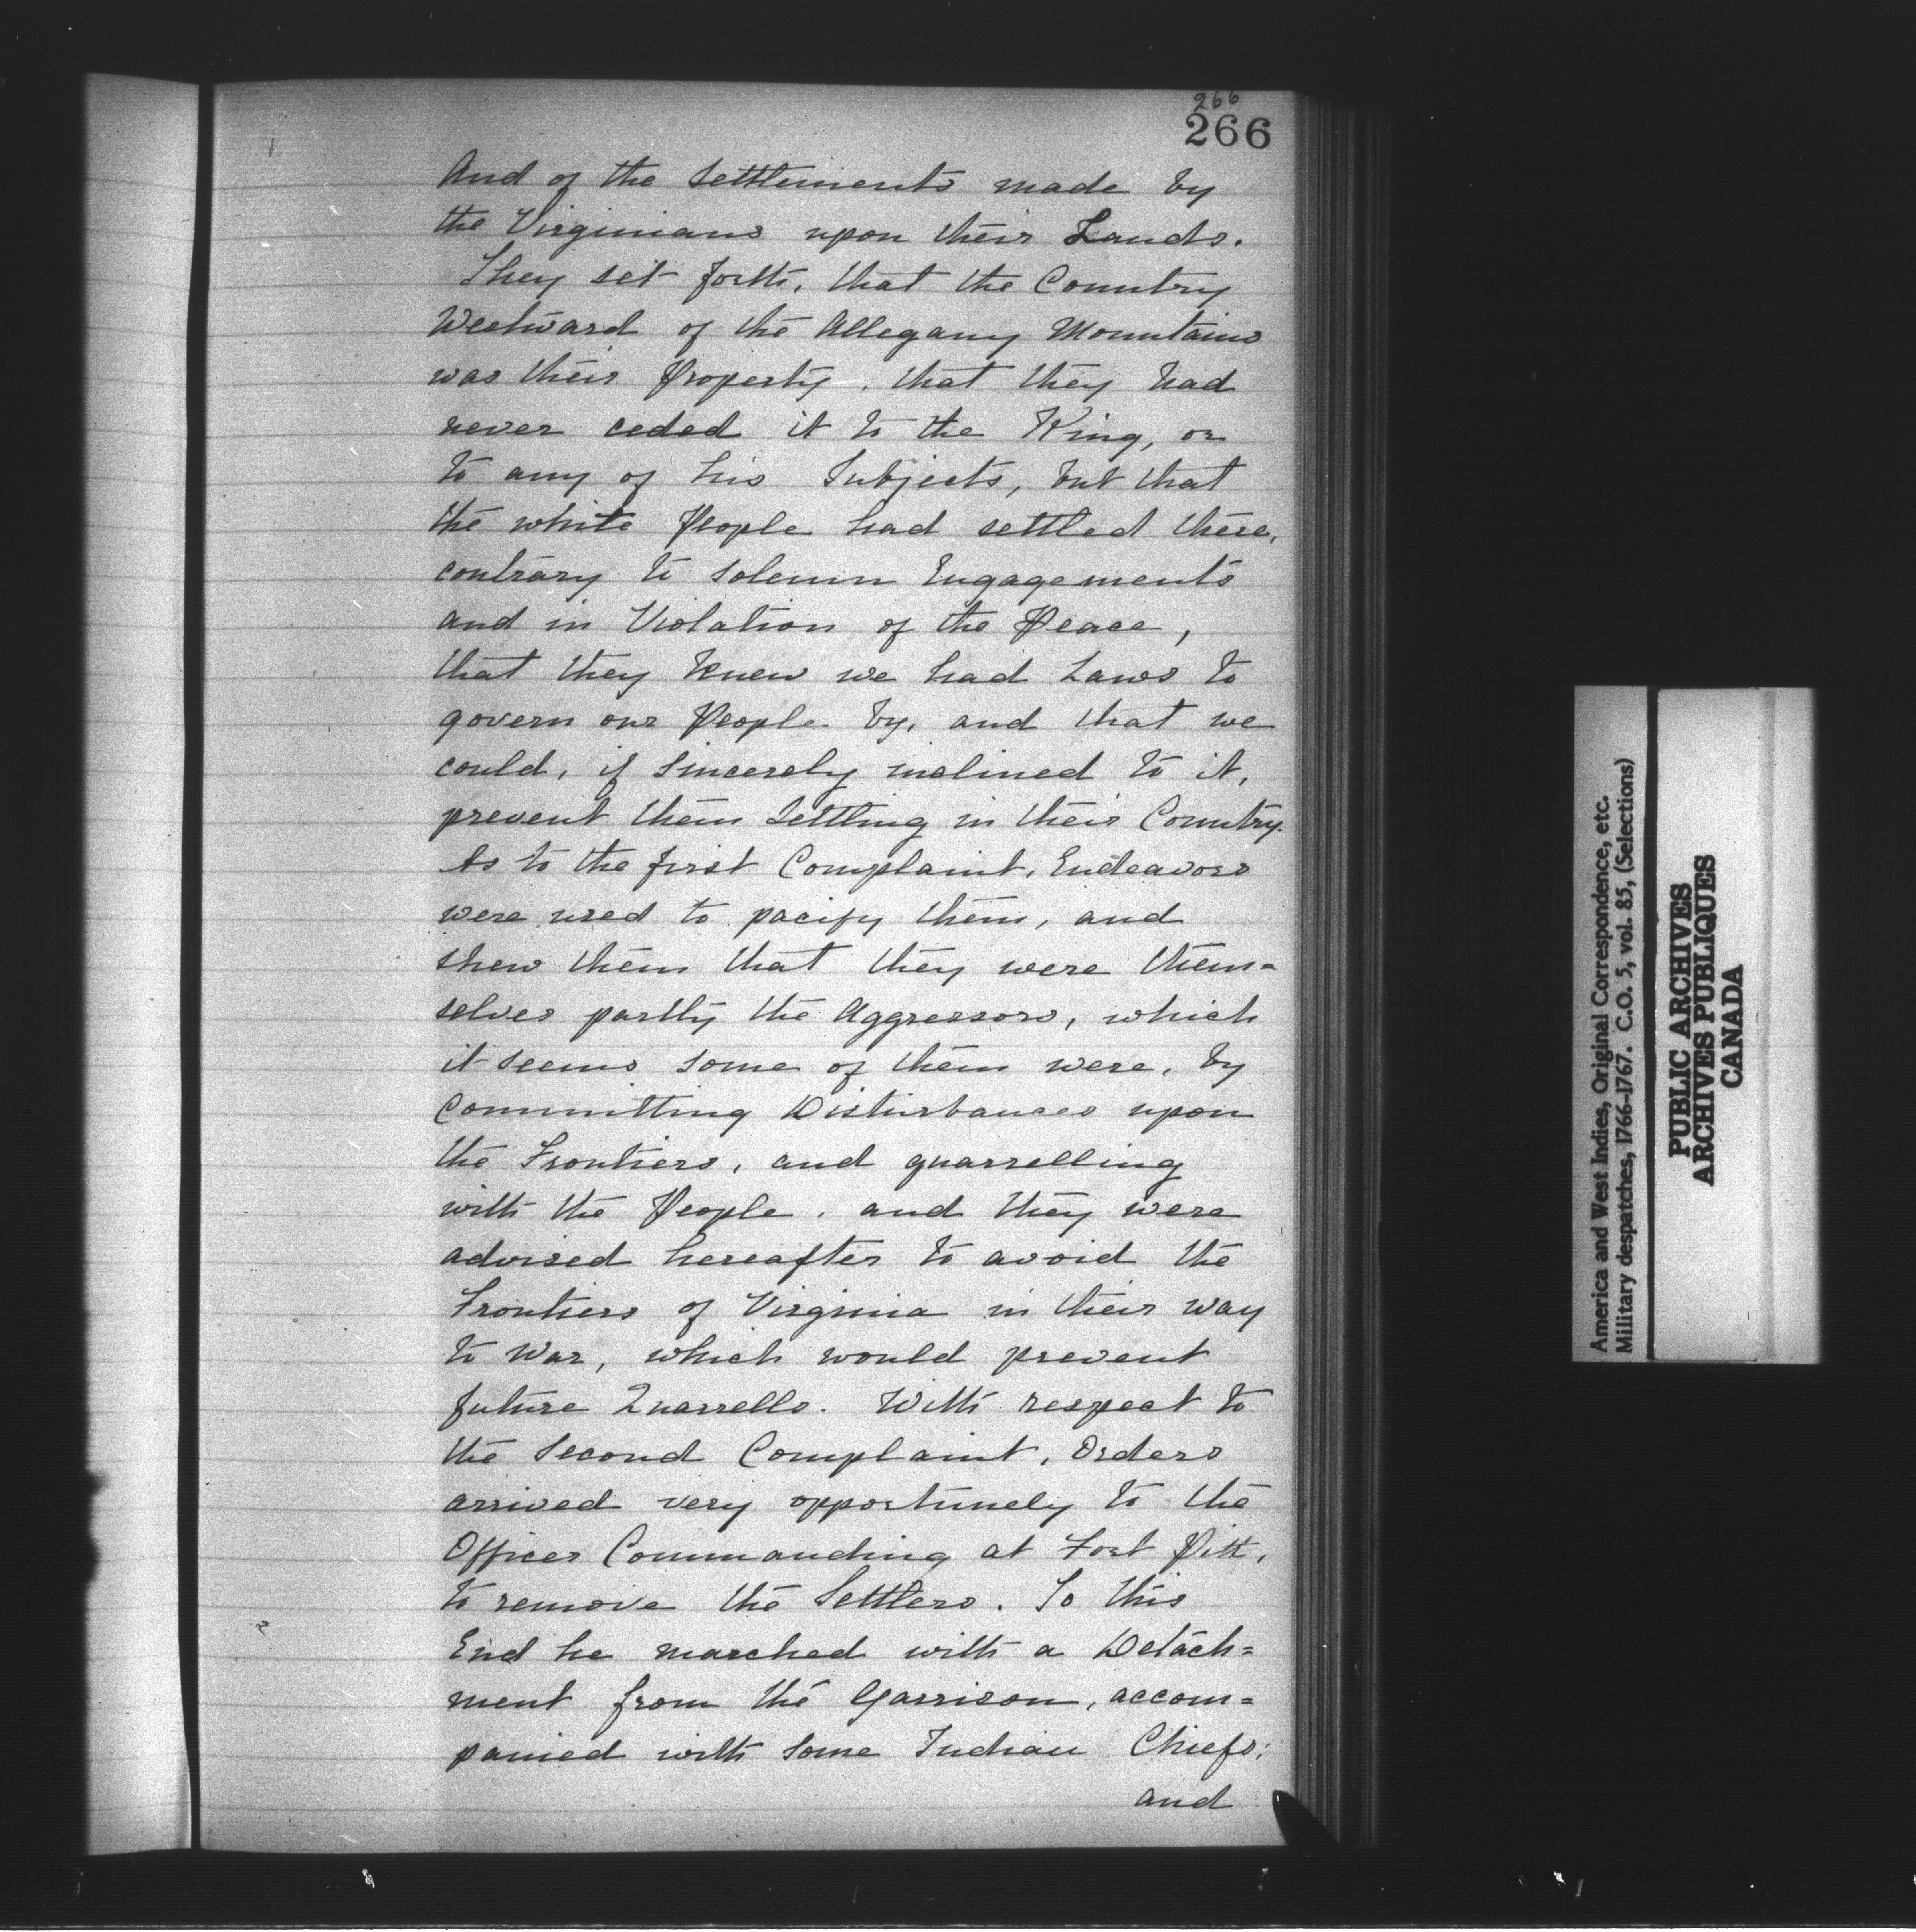 266
266
And of the Settlements made by
the Virginians upon their Lands.
They set forth, that the Country
Westward of the Allegany Mountains
was their Property, that they had
never ceded it to the King, or
to any of his Subjects, but that
the white People had settled there,
contrary to Solemn Engagements
and in Violation of the Peace,
that they knew we had Laws to
govern our People by, and that we
could, if Sincerely inclined to it,
prevent them Settling in their Country.
As to the first Complaint, Endeavors
were used to pacify them, and
shew them that they were them=
selves partly the Aggressors, which
it seems some of them were, by
Committing Disturbances upon
the Frontiers, and quarrelling
with the People, and they were
advised hereafter to avoid the
Frontiers of Virginia in their way
to War, which would prevent
future Quarrells. With respect to
the Second Complaint, Orders
arrived very opportunely to the
Officer Commanding at Fort Pitt,
to remove the Settlers. To this
End he marched with a Detach=
ment from the Garrison, accom=
panied with some Indian Chiefs;
and
America and West Indies, Original Correspondence, etc.
Military despatches, 1766-1767. C.O. 5, vol. 85, (Selections)
PUBLIC ARCHIVES
ARCHIVES PUBLIQUES
CANADA